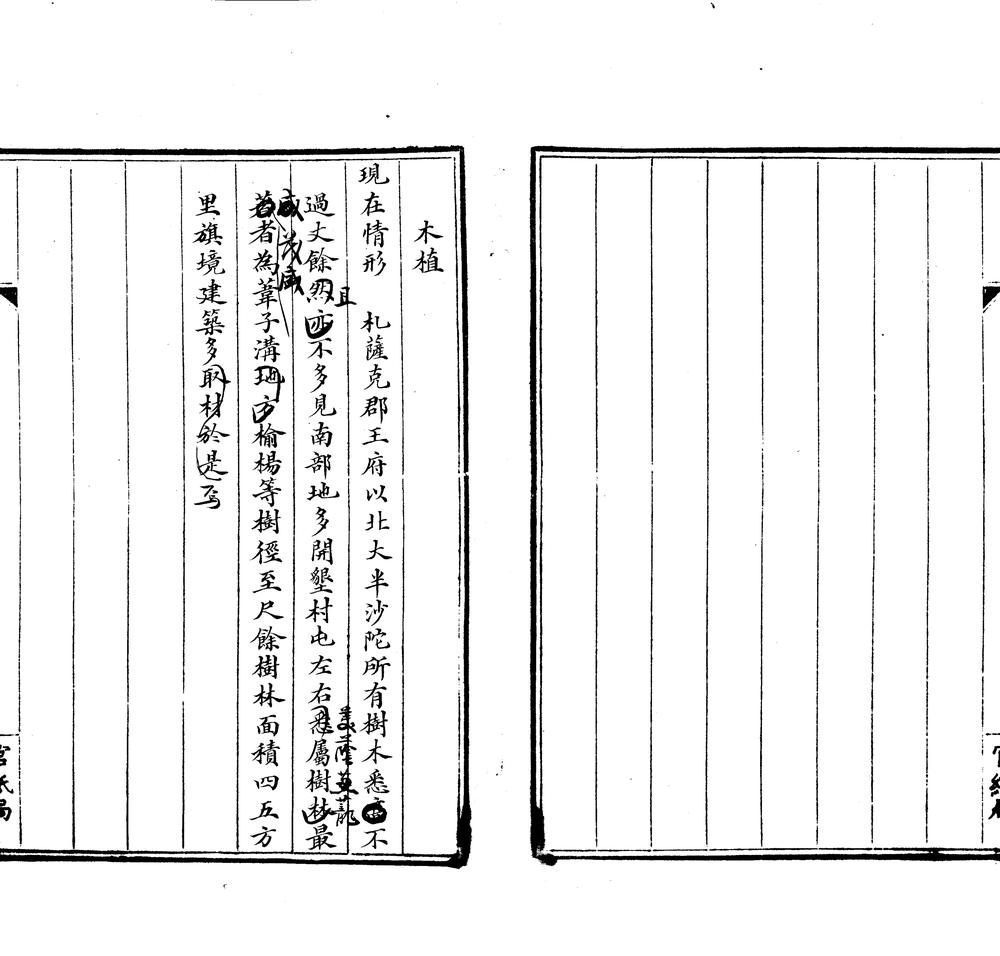 木植
現在情形　札薩克郡王府以北大半沙陀所有樹木悉不
過丈餘然亦不多見南部地多開墾村屯左右悉屬樹林最
且
蔭蘢
茂盛
者為葦子溝地方榆楊等樹徑至尺餘樹林面積四五方
里旗境建築多取材於是焉
官紙局